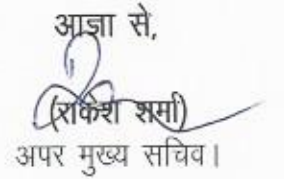 आज्ञा से,
(राकेश शर्मा)
अपर मुख्य सचिव।